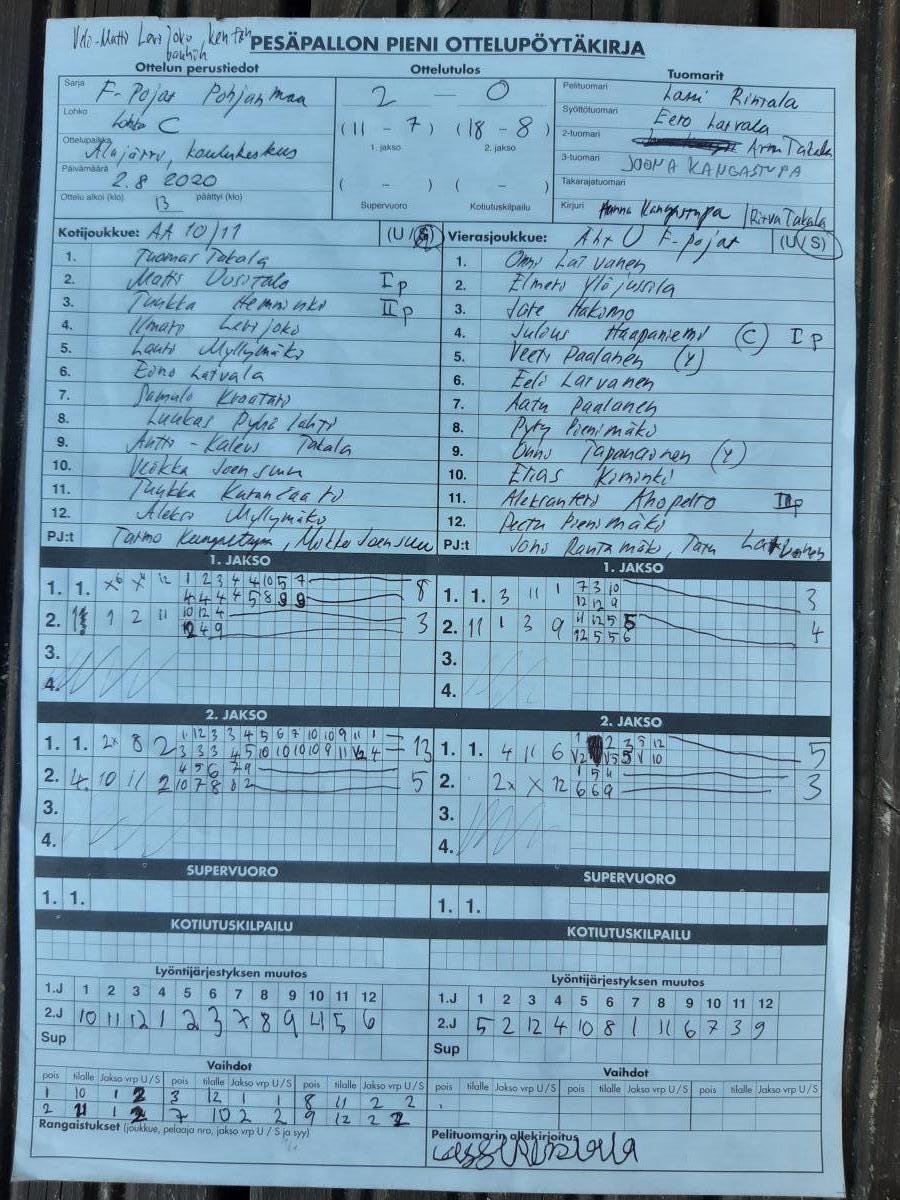 Veli-Matti Levijoki kentän
PESÄPALLON PIENI OTTELUPÖYTÄKIRJA
Ottelun perustiedot
Sarja F-Pojat Pohjanmaa
Lohko Lohko C
Ottelupaikka Alajärvi, koulukeskus
Päivämäärä 2.8 2020
Ottelu alkoi (klo) 13 päättyi (klo)
Ottelutulos
2 — 0
(11 - 7) (18 - 8)
1. jakso 2. jakso
( - ) ( - )
Supervuoro Kotiutuskilpailu
Tuomarit
Pelituomari Lassi Rintala
Syöttötuomari Eero Latvala
2-tuomari Arttu Takala
3-tuomari JOONA KANGASTUPA
Takarajatuomari
Kirjuri Hanna Kangastupa / Ritva Takala
Kotijoukkue: AA 10/11 (U / S)
1. Tuomas Takala
2. Matti Uusitalo I p
3. Tuukka Hemminki II p
4. Ilmari Levijoki
5. Lauri Myllymäki
6. Eino Latvala
7. Samuli Kroatari
8. Luukas Pyhälahti
9. Antti-Kalevi Takala
10. Veikka Joensuu
11. Tuukka
12. Aleksi Myllymäki
PJ:t Tarmo Kangastupa, Mikko Joensuu
Vierasjoukkue: Äht U F-pojat (U / S)
1. Onni Latvanen
2. Elmeri Ylöjussila
3. Hakomo
4. Julius Haapaniemi (C) I p
5. Veeti Paalanen (Y)
6. Eeli Latvanen
7. Aatu Paalanen
8. Pyry Pienimäki
9. Onni Tapanainen (Y)
10. Elias Kiminki
11. Aleksanteri Ahopelto II p
12. Peetu Pienimäki
PJ:t Joni Rantamäki, Taru Latvanen
1. JAKSO
1. 1. x6 x4 12 1 2 3 4 4 10 5 7 8
4 4 4 4 5 8 9 9
2. 1 2 11 10 12 4 3
12 4 9
3.
4.
1. JAKSO
1. 1. 3 11 1 7 3 10 3
12 12 9
2. 11 1 3 9 11 12 5 5 4
12 5 5 6
3.
4.
2. JAKSO
1. 1. 2x 8 2 1 12 3 3 4 5 6 7 10 10 9 11 1 13
3 3 3 4 5 10 10 10 10 9 11 12 4
2. 4. 10 11 2 4 5 6 7 9 5
10 7 8 10 2
3.
4.
2. JAKSO
1. 1. 4 11 6 1 2 3 5 12 5
2. 2x x 12 1 5 4 3
6 6 9
3.
4.
SUPERVUORO
1. 1.
SUPERVUORO
1. 1.
KOTIUTUSKILPAILU
KOTIUTUSKILPAILU
Lyöntijärjestyksen muutos
1.J 1 2 3 4 5 6 7 8 9 10 11 12
2.J 10 11 12 1 2 3 7 8 9 4 5 6
Sup
Lyöntijärjestyksen muutos
1.J 1 2 3 4 5 6 7 8 9 10 11 12
2.J 5 2 12 4 10 8 1 11 6 7 3 9
Sup
Vaihdot
pois tilalle Jakso vrp U/S pois tilalle Jakso vrp U/S pois tilalle Jakso vrp U/S
1 10 1 2 3 12 1 1 8 11 2 2
2 11 1 2 7 10 2 2 9 12 2 2
Vaihdot
pois tilalle Jakso vrp U/S pois tilalle Jakso vrp U/S pois tilalle Jakso vrp U/S
Rangaistukset (joukkue, pelaaja nro, jakso vrp U / S ja syy)
Pelituomarin allekirjoitus
Lassi Rintala